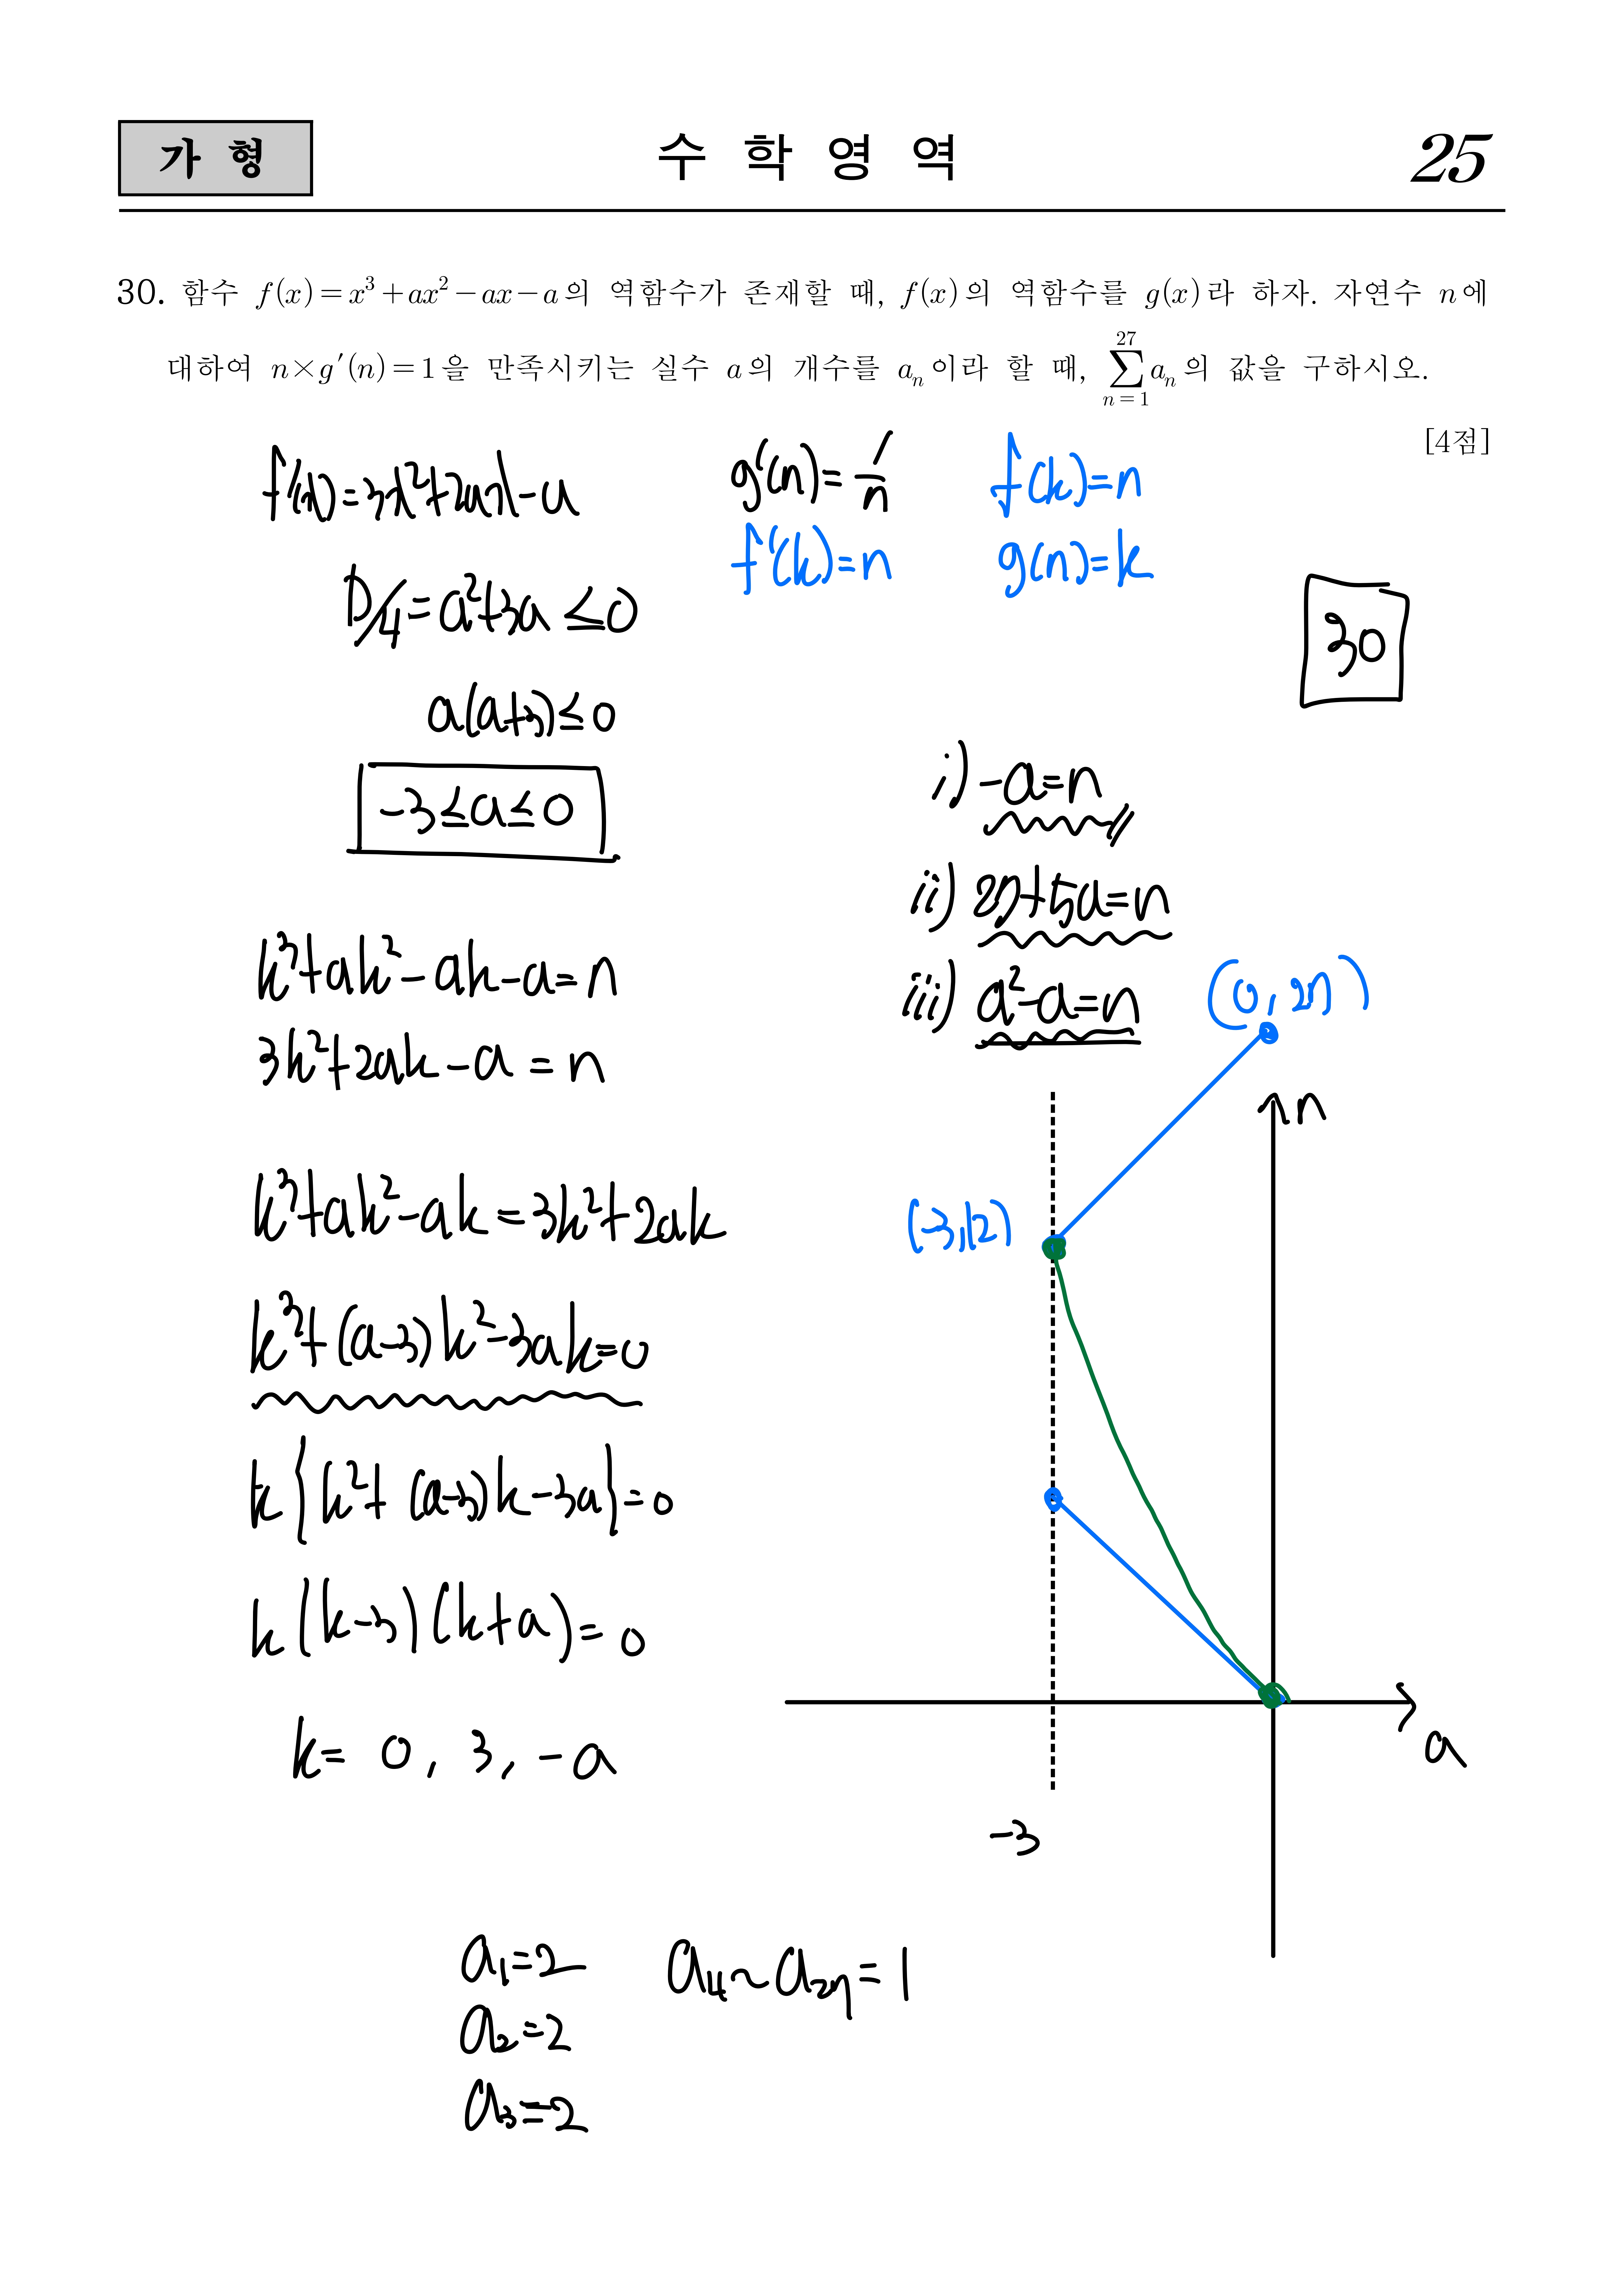 가 형
수 학 영 역
25
30. 함수 f(x)=x³+ax²-ax-a의 역함수가 존재할 때, f(x)의 역함수를 g(x)라 하자. 자연수 n에
대하여 n×g′(n)=1을 만족시키는 실수 a의 개수를 aₙ이라 할 때, ∑_{n=1}^{27} aₙ의 값을 구하시오.
[4점]
f'(x)=3x²+2ax-a
D/4=a²+3a≤0
a(a+3)≤0
-3≤a≤0
k³+ak²-ak-a=n
3k²+2ak-a=n
k³+ak²-ak=3k²+2ak
k³+(a-3)k²-3ak=0
k{k²+(a-3)k-3a}=0
k(k-3)(k+a)=0
k= 0, 3, -a
g'(n)=1/n
f'(k)=n
f(k)=n
g(n)=k
30
i) -a=n
ii) 27+5a=n
iii) a²-a=n
(0, 27)
n
(-3,12)
a
-3
a₁=2
a₂=2
a₃=2
a₄~a₂₇=1